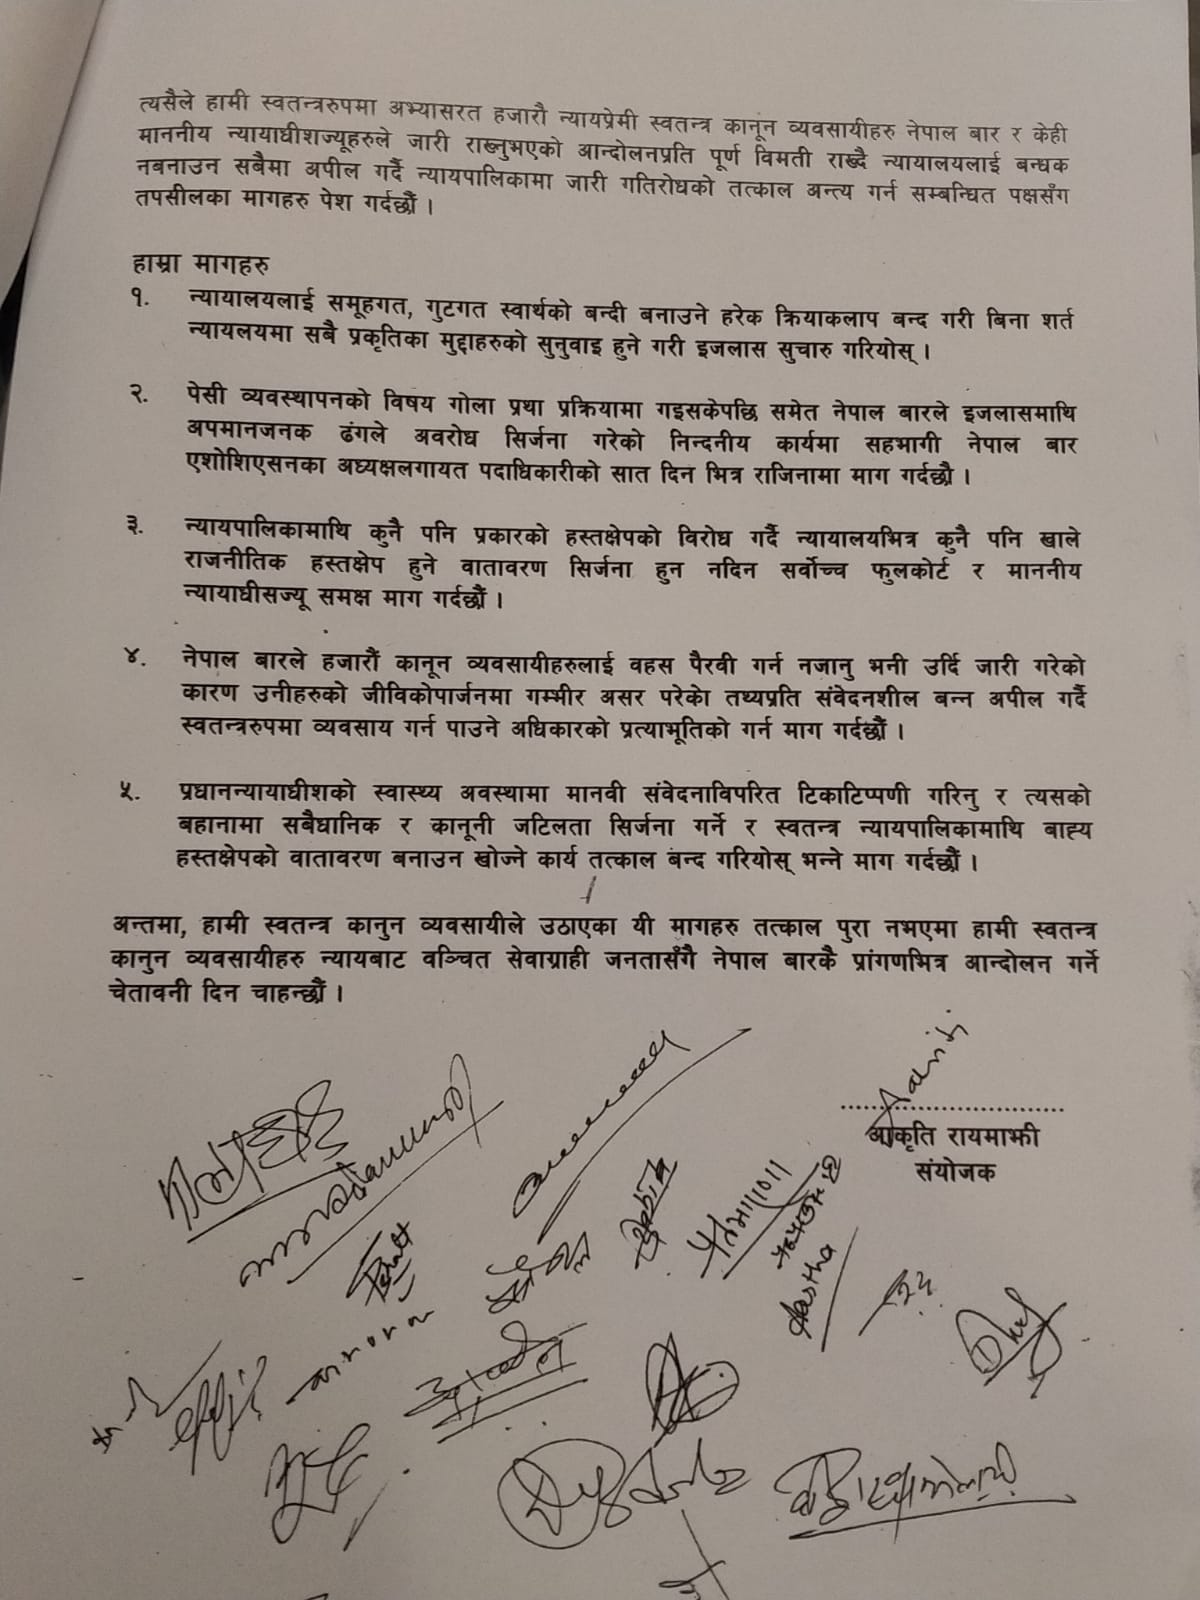 त्यसैले हामी स्वतन्त्ररुपमा अभ्यासरत हजारौ न्यायप्रेमी स्वतन्त्र कानून व्यवसायीहरु नेपाल बार र केही
माननीय न्यायाधीशज्यूहरुले जारी राख्नुभएको आन्दोलनप्रति पूर्ण विमती राख्दै न्यायालयलाई बन्धक
नबनाउन सबैमा अपील गर्दै न्यायपालिकामा जारी गतिरोधको तत्काल अन्त्य गर्न सम्बन्धित पक्षसँग
तपसीलका मागहरु पेश गर्दछौं ।
हाम्रा मागहरु
१. न्यायालयलाई समूहगत, गुटगत स्वार्थको बन्दी बनाउने हरेक क्रियाकलाप बन्द गरी बिना शर्त
न्यायलयमा सबै प्रकृतिका मुद्दाहरुको सुनुवाइ हुने गरी इजलास सुचारु गरियोस् ।
२. पेसी व्यवस्थापनको विषय गोला प्रथा प्रक्रियामा गइसकेपछि समेत नेपाल बारले इजलासमाथि
अपमानजनक ढंगले अवरोध सिर्जना गरेको निन्दनीय कार्यमा सहभागी नेपाल बार
एशोशिएसनका अध्यक्षलगायत पदाधिकारीको सात दिन भित्र राजिनामा माग गर्दछौ ।
३. न्यायपालिकामाथि कुनै पनि प्रकारको हस्तक्षेपको विरोध गर्दै न्यायालयभित्र कुनै पनि खाले
राजनीतिक हस्तक्षेप हुने वातावरण सिर्जना हुन नदिन सर्वोच्च फुलकोर्ट र माननीय
न्यायाधीसज्यू समक्ष माग गर्दछौं ।
४. नेपाल बारले हजारौं कानून व्यवसायीहरुलाई वहस पैरवी गर्न नजानु भनी उर्दि जारी गरेको
कारण उनीहरुको जीविकोपार्जनमा गम्भीर असर परेको तथ्यप्रति संवेदनशील बन्न अपील गर्दै
स्वतन्त्ररुपमा व्यवसाय गर्न पाउने अधिकारको प्रत्याभूतिको गर्न माग गर्दछौं ।
५. प्रधानन्यायाधीशको स्वास्थ्य अवस्थामा मानवी संवेदनाविपरित टिकाटिप्पणी गरिनु र त्यसको
बहानामा सबैधानिक र कानूनी जटिलता सिर्जना गर्ने र स्वतन्त्र न्यायपालिकामाथि बाह्य
हस्तक्षेपको वातावरण बनाउन खोज्ने कार्य तत्काल बन्द गरियोस् भन्ने माग गर्दछौं ।
अन्तमा, हामी स्वतन्त्र कानुन व्यवसायीले उठाएका यी मागहरु तत्काल पुरा नभएमा हामी स्वतन्त्र
कानुन व्यवसायीहरु न्यायबाट वञ्चित सेवाग्राही जनतासँगै नेपाल बारकै प्रांगणभित्र आन्दोलन गर्ने
चेतावनी दिन चाहन्छौं ।
आकृति रायमाझी
संयोजक
Aastha